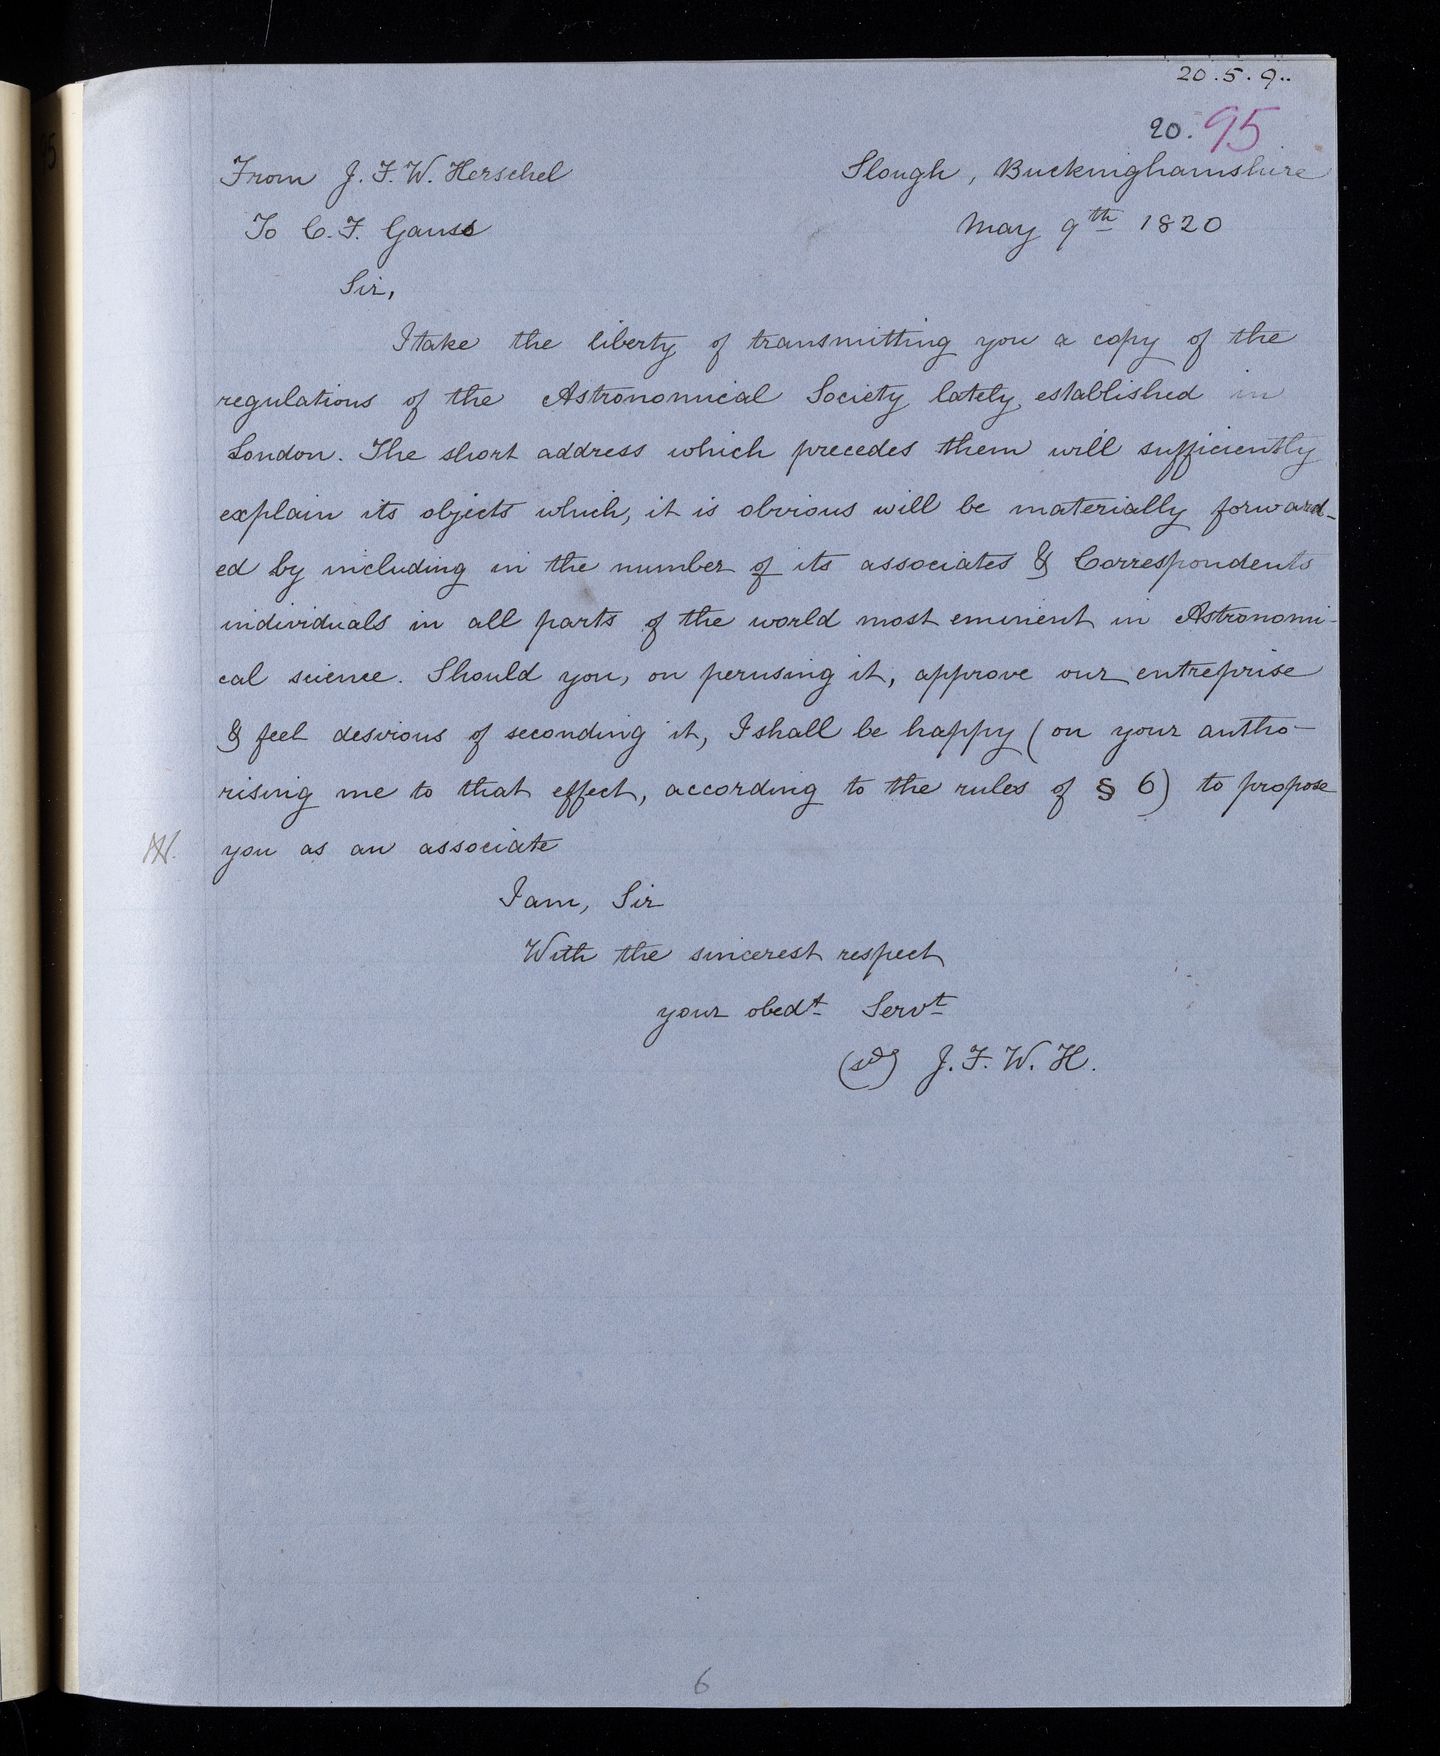 20.5.9..
20. 95
From J. F. W. Herschel Slough, Buckinghamshire
To C. F. Gauss May 9th 1820
Sir,
I take the liberty of transmitting you a copy of the
regulations of the Astronomical Society lately established in
London. The short address which precedes them will sufficiently
explain its objects which, it is obvious will be materially forward-
ed by including in the number of its associates & Correspondents
individuals in all parts of the world most eminent in Astronomi-
cal science. Should you, on perusing it, approve our entreprise
& feel desirous of seconding it, I shall be happy (on your autho-
rising me to that effect, according to the rules of § 6) to propose
you as an associate
I am, Sir
With the sincerest respect
your obedt Servt
(sd) J. F. W. H.
6